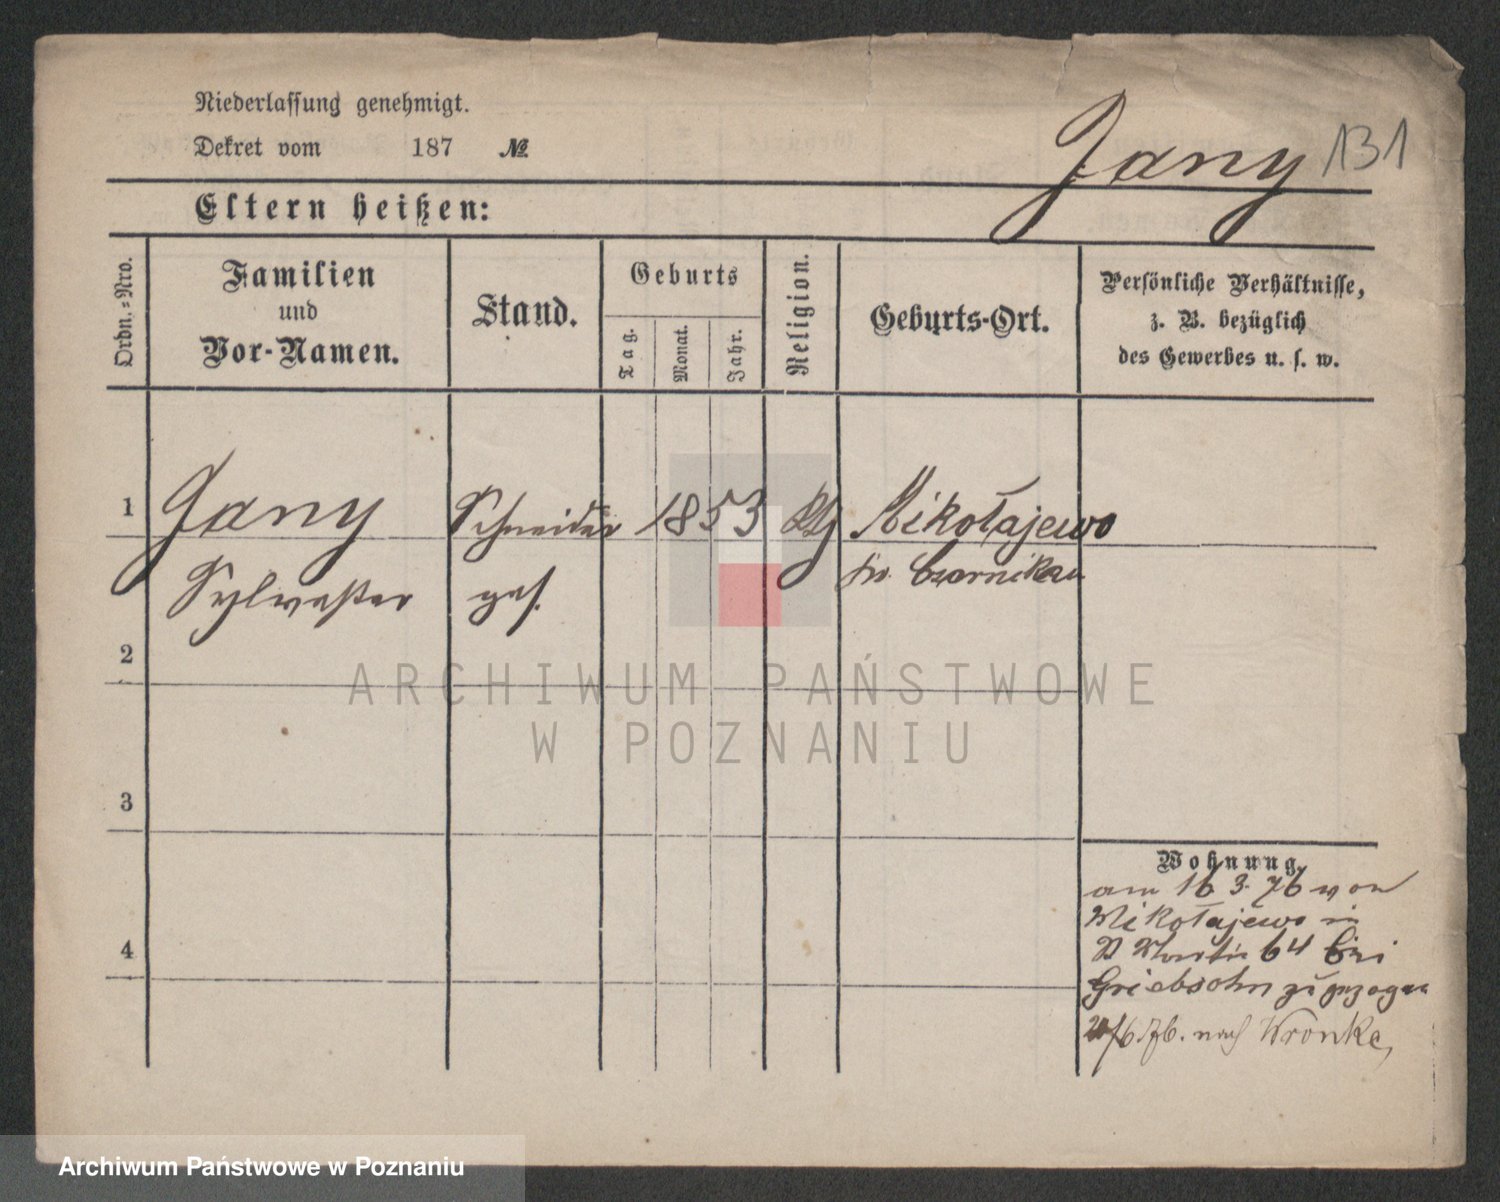 Niederlassung genehmigt.
Dekret vom 187 №
Jany 131
Eltern heißen:
Ordn.=Nro.
Familien
und
Vor-Namen.
Stand.
Geburts
Tag.
Monat.
Jahr.
Religion.
Geburts-Ort.
Persönliche Verhältnisse,
z. B. bezüglich
des Gewerbes u. s. w.
1
Jany Schneider 1853 Mikołajewo
Sylvester ges. Czarnikau
2
3
4
Wohnung.
am 16 3. 76 von
Mikołajewo in
64 bei
Griebsohn zugezogen
/6. 76. nach Wronke,
ARCHIWUM PAŃSTWOWE
W POZNANIU
Archiwum Państwowe w Poznaniu